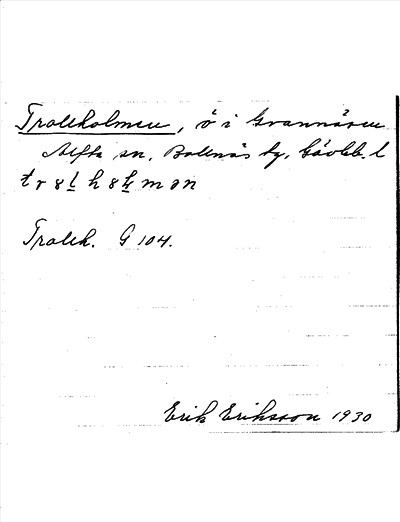 Trollholmen, ö i Grannäsen
Alfta sn. Bollnäs tg. Gävleb. l
t r 8 l h 8 l m ə n
Trollh. G 104.
Erik Eriksson 1930